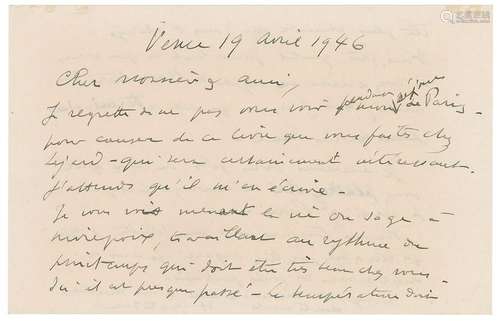 Vence 19 avril 1946
Cher monsieur & ami,
Je regrette de ne pas vous voir pendant mon séjour de Paris
pour causer de ce livre que vous faites chez
Tejard - qui sera certainement intéressant.
J'attends qu'il m'en écrive -
Je vous vois menant la vie du sage à
mirepoix, travaillant au rythme du
printemps qui doit être très beau chez vous -
Ici il est presque passé - la température doit